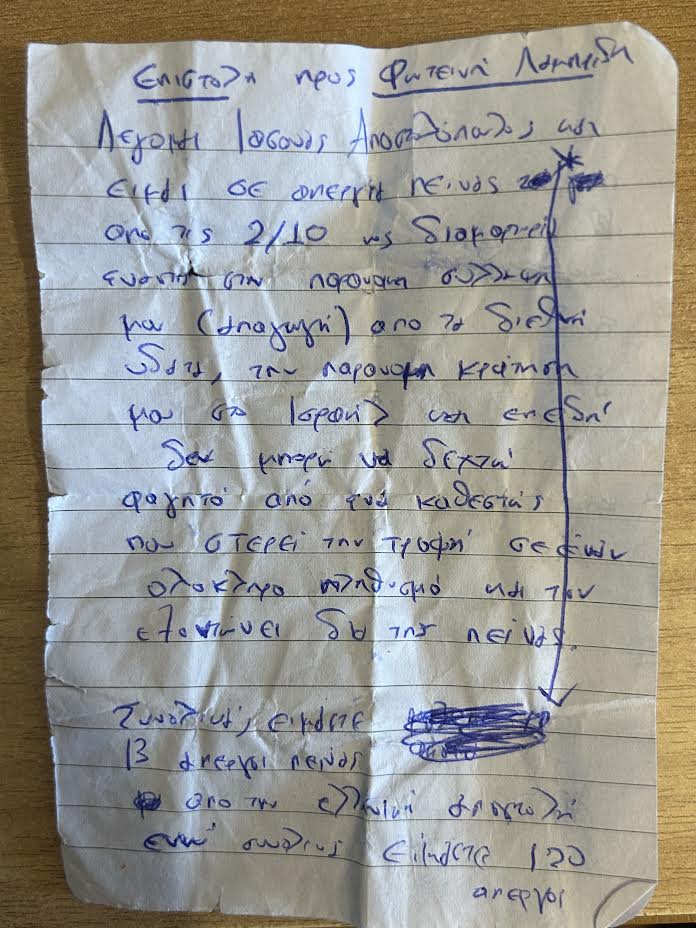 Επιστολή προς Φωτεινή Λαμπρίδη
Λέγομαι Ιάσονας Αποστολόπουλος και
είμαι σε απεργία πείνας
από τις 2/10 ως διαμαρτυρία
ενάντια στην παράνομη σύλληψη
μου (απαγωγή) από τα διεθνή
ύδατα, την παράνομη κράτηση
μου στο Ισραήλ και επειδή
δεν μπορώ να δεχτώ
φαγητό από ένα καθεστώς
που στερεί την τροφή σε έναν
ολόκληρο πληθυσμό και τον
εξοντώνει δια της πείνας.
Συνολικά, είμαστε
13 απεργοί πείνας
από την ελληνική αποστολή
ενώ συνολικά είμαστε 120
απεργοί